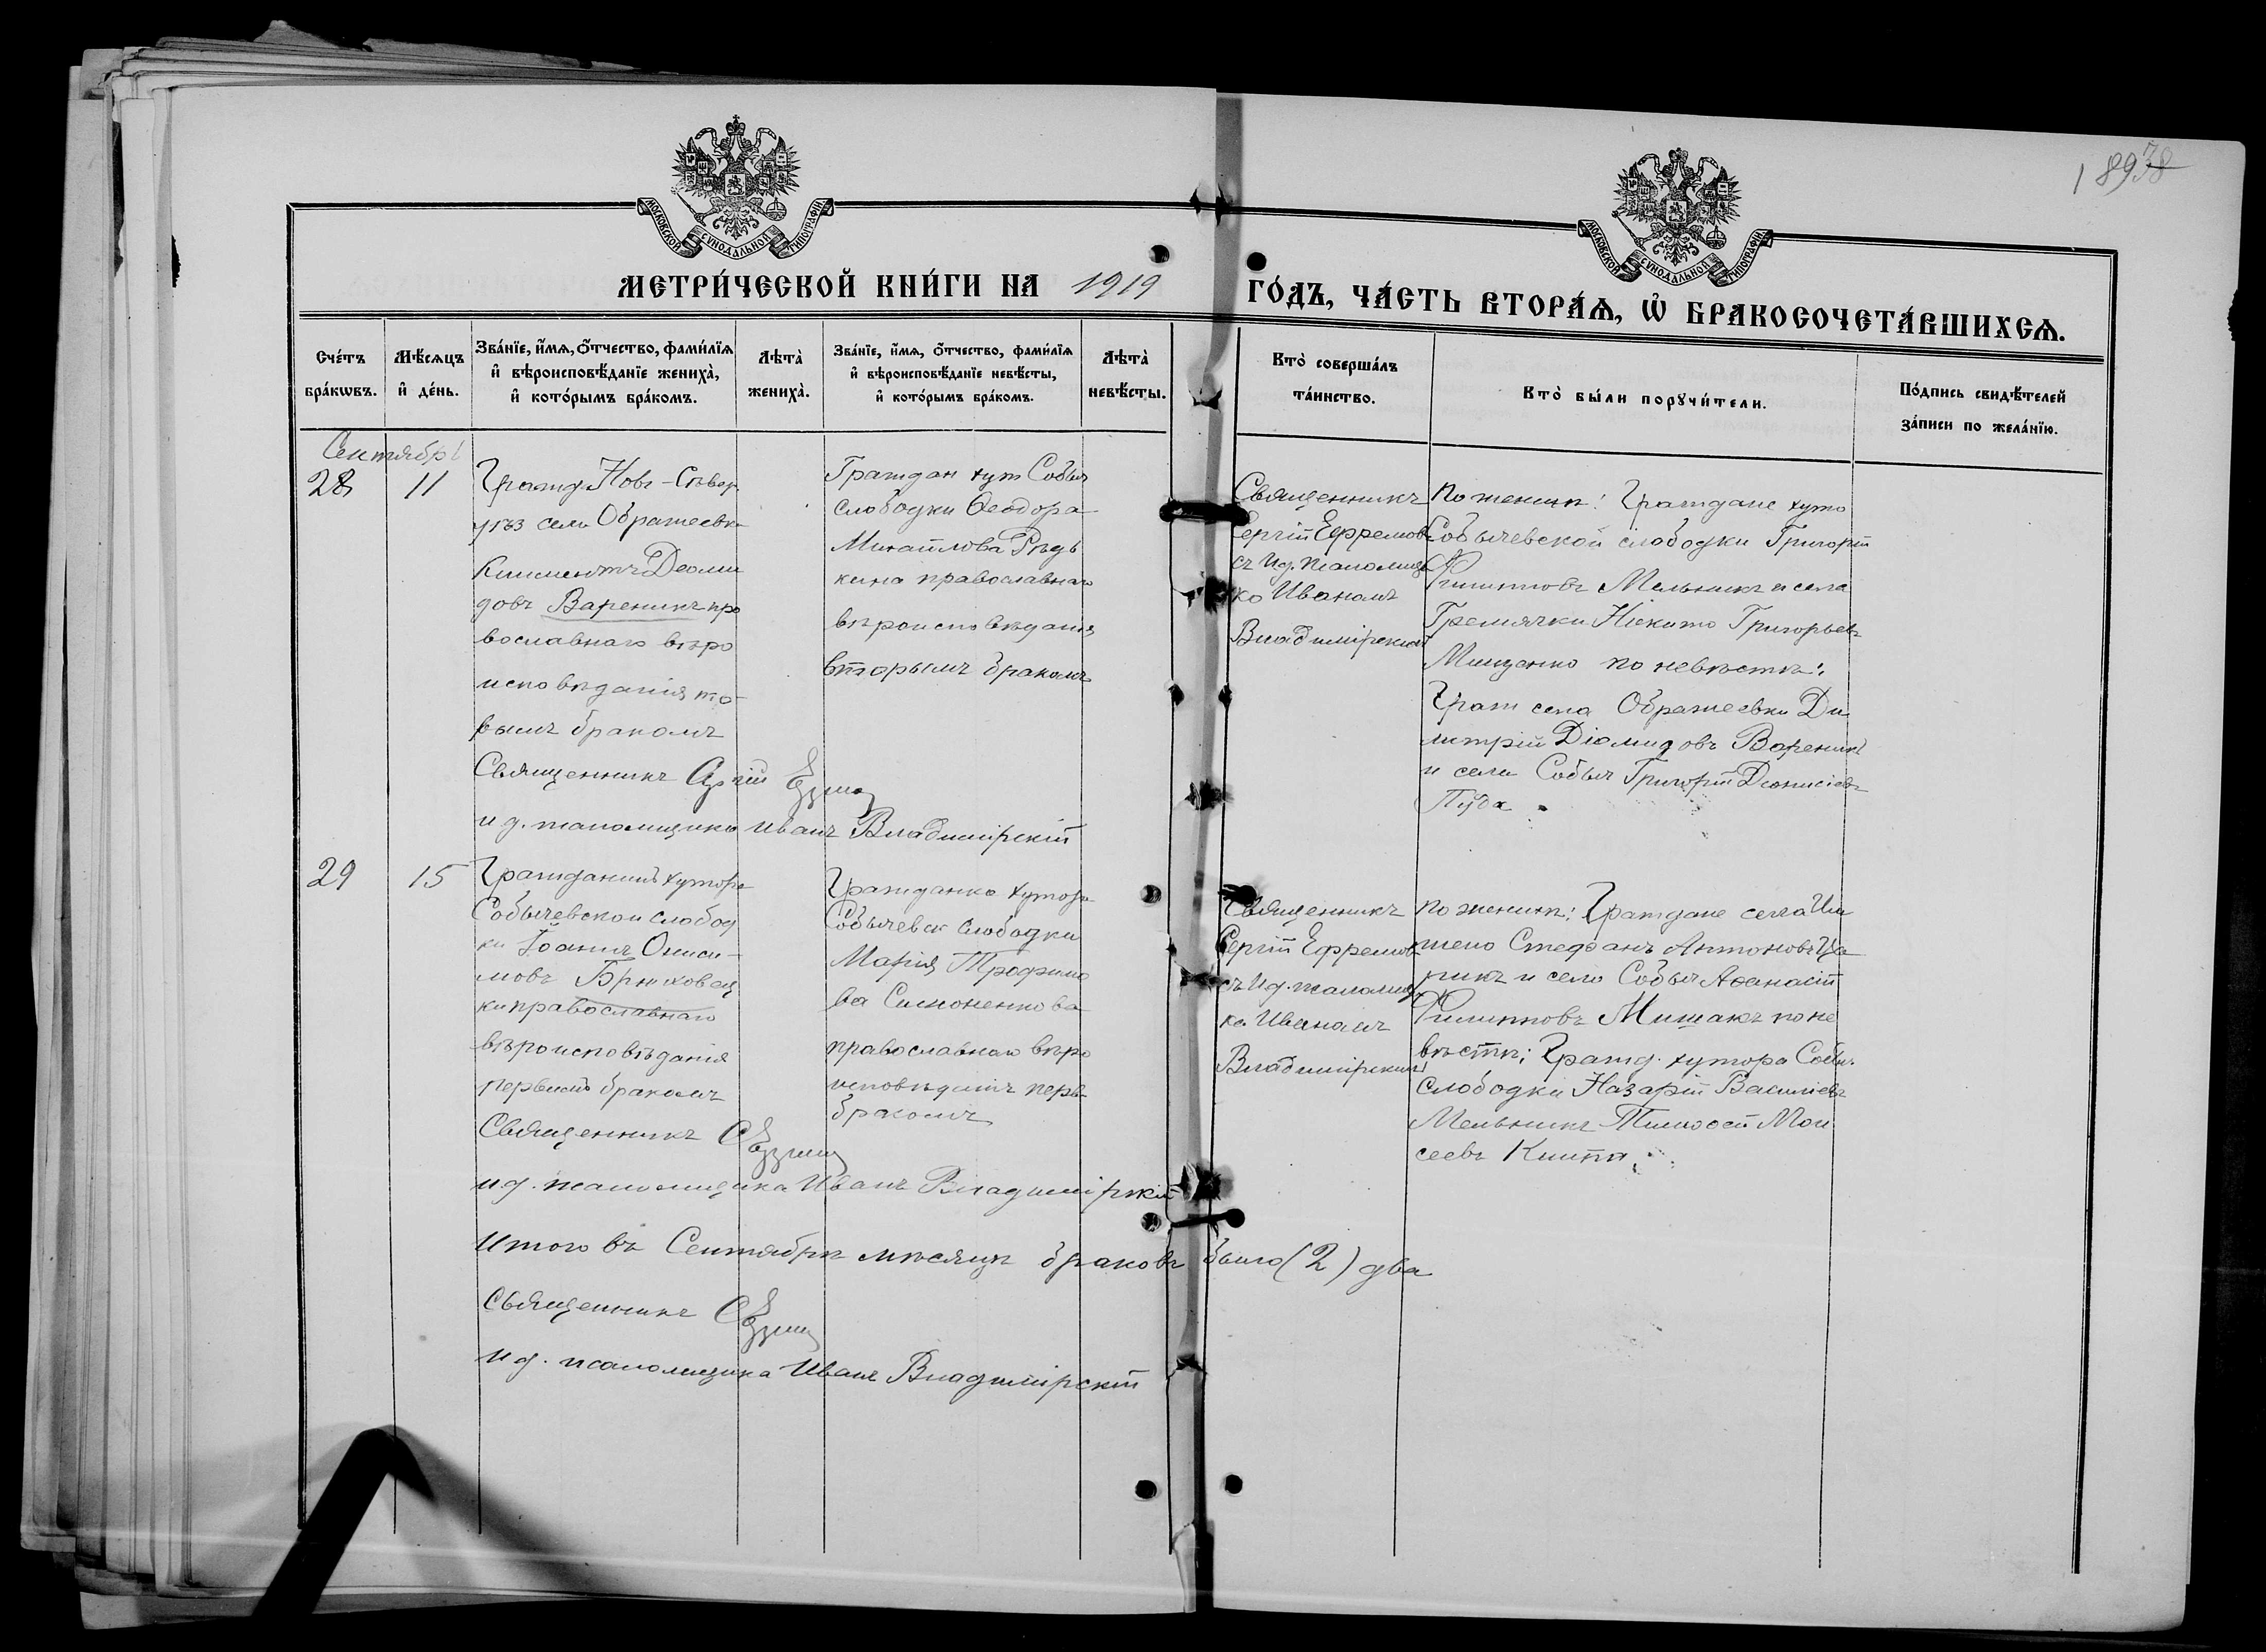 1 89 38
МОСКОВСКОЙ СѴНОДАЛЬНОЙ ТИПОГРАФІИ
МОСКОВСКОЙ СѴНОДАЛЬНОЙ ТИПОГРАФІИ
МЕТРИ́ЧЕСКОЙ КНИ́ГИ НА 1919 ГО́ДЪ, ЧА́СТЬ ВТОРА́Ѧ, Ѡ҆ БРАКОСОЧЕТА́ВШИХСѦ.
Сче́тъ бра́кѡвъ.
Мѣ́сѧцъ и҆ де́нь.
Зва́нїе, и҆́мѧ, ѻ҆́тчество, фами́лїѧ
и҆ вѣроисповѣ́данїе жениха̀,
и҆ кото́рымъ бра́комъ.
Лѣта̀ жениха̀.
Зва́нїе, и҆́мѧ, ѻ҆́тчество, фами́лїѧ
и҆ вѣроисповѣ́данїе невѣ́сты,
и҆ кото́рымъ бра́комъ.
Лѣта̀ невѣ́сты.
Кто̀ соверша́лъ
та́инство.
Кто̀ бы́ли порꙋчи́тели.
По́дпись свидѣ́телей
за́писи по жела́нїю.
Сентябрь
28 11
Гражд Новг-Сѣвер.
уѣз села Ображеевки
Климентъ Деоми
довъ Вареникъ пра
вославнаго вѣро
исповѣданія
вымъ бракомъ
Граждан хут Собыч
слободки Ѳеодора
Михайлова Рѣдь
кина православнаго
вѣроисповѣданія
вторымъ бракомъ
Священникъ
Сергій Ефремов
съ И.д. псаломщи
ка Иваномъ
Владимірскимъ
По женихѣ: Граждане хуто
Собычевской слободки Григорій
Филипповъ Мельникъ и села
Гремячки Никита Григорьевъ
Мищенко по невѣстѣ:
Граж села Ображеевки Ди
митрій Діомидовъ Вареникъ
и села Собыч Григорій Діонисіевъ
Пуха
Священникъ Сергій
и д. псаломщика Иванъ Владимірскій
29 15
Гражданинъ хутора
Собычевской слобод
ки Іоаннъ Ониси-
мовъ Брюховец
ки православнаго
вѣроисповѣданія
первымъ бракомъ
Гражданка хутора
Собычевск слободки
Марія Трофимо
ва Симоненкова
православнаго вѣро
исповѣданія перв
бракомъ
Священникъ
Сергій Ефремов
съ И.д. псаломщи
ка Иваномъ
Владимірскимъ
По женихѣ: Граждане села
Стефанъ Антоновъ Ца
рикъ и села Собыч Аѳанасій
Филипповъ Мишакъ по не
вѣстѣ; Гражд. хутора Собыч.
слободки Назарій Василіевъ
Мельникъ Тимоѳей Мои
сеевъ
Священникъ
и.д. псаломщика Иванъ Владимірскій
Итого въ Сентябрѣ мѣсяцѣ браковъ было (2) два
Священникъ
и д. псаломщика Иванъ Владимірскій